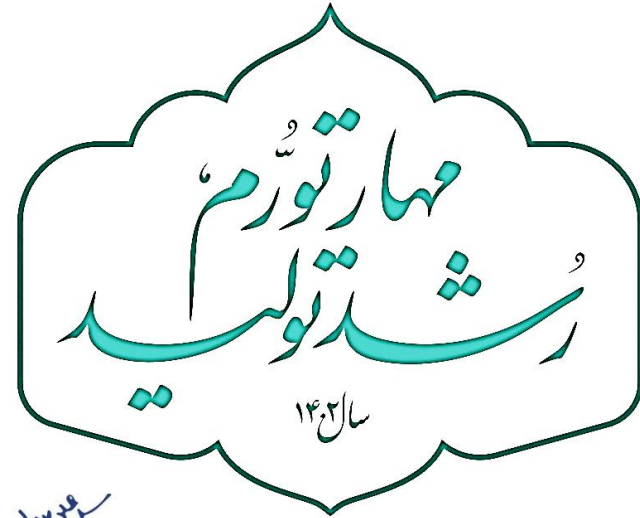 مهار تورُّم
رُشد تولید
سال ۱۴۰۲